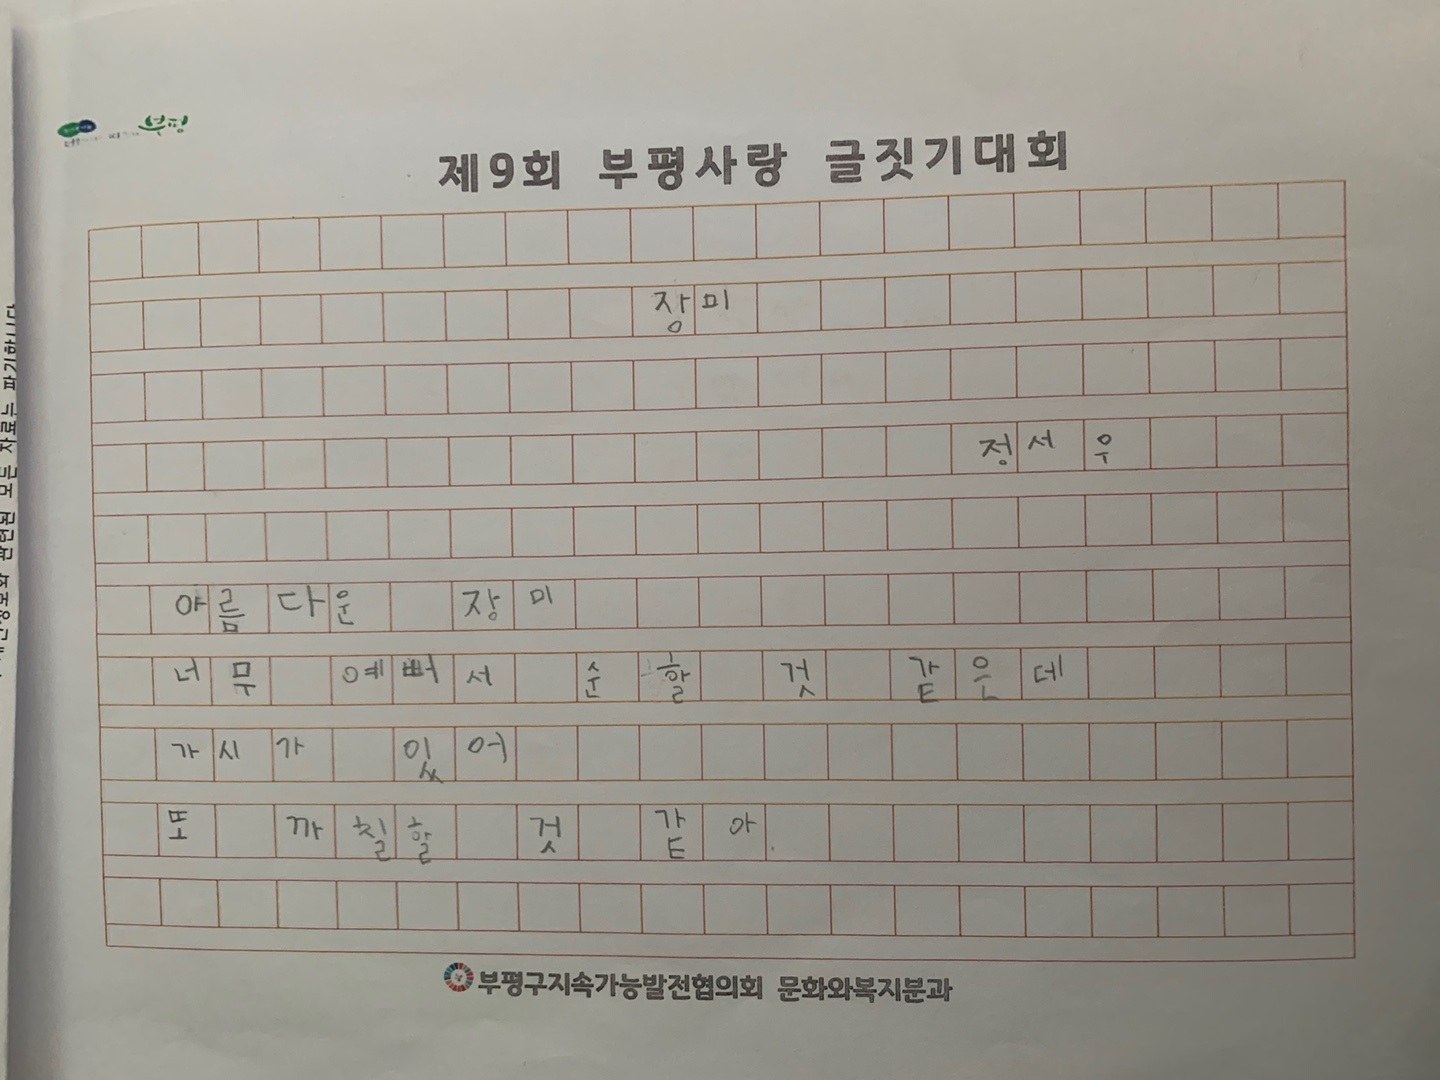 부평
제9회 부평사랑 글짓기대회
장미
정서우
아름다운 장미
너무 예뻐서 순할 것 같은데
가시가 있어
또 까칠할 것 같아.
부평구지속가능발전협의회 문화와복지분과
관련된 모든 자료는 파기합니다